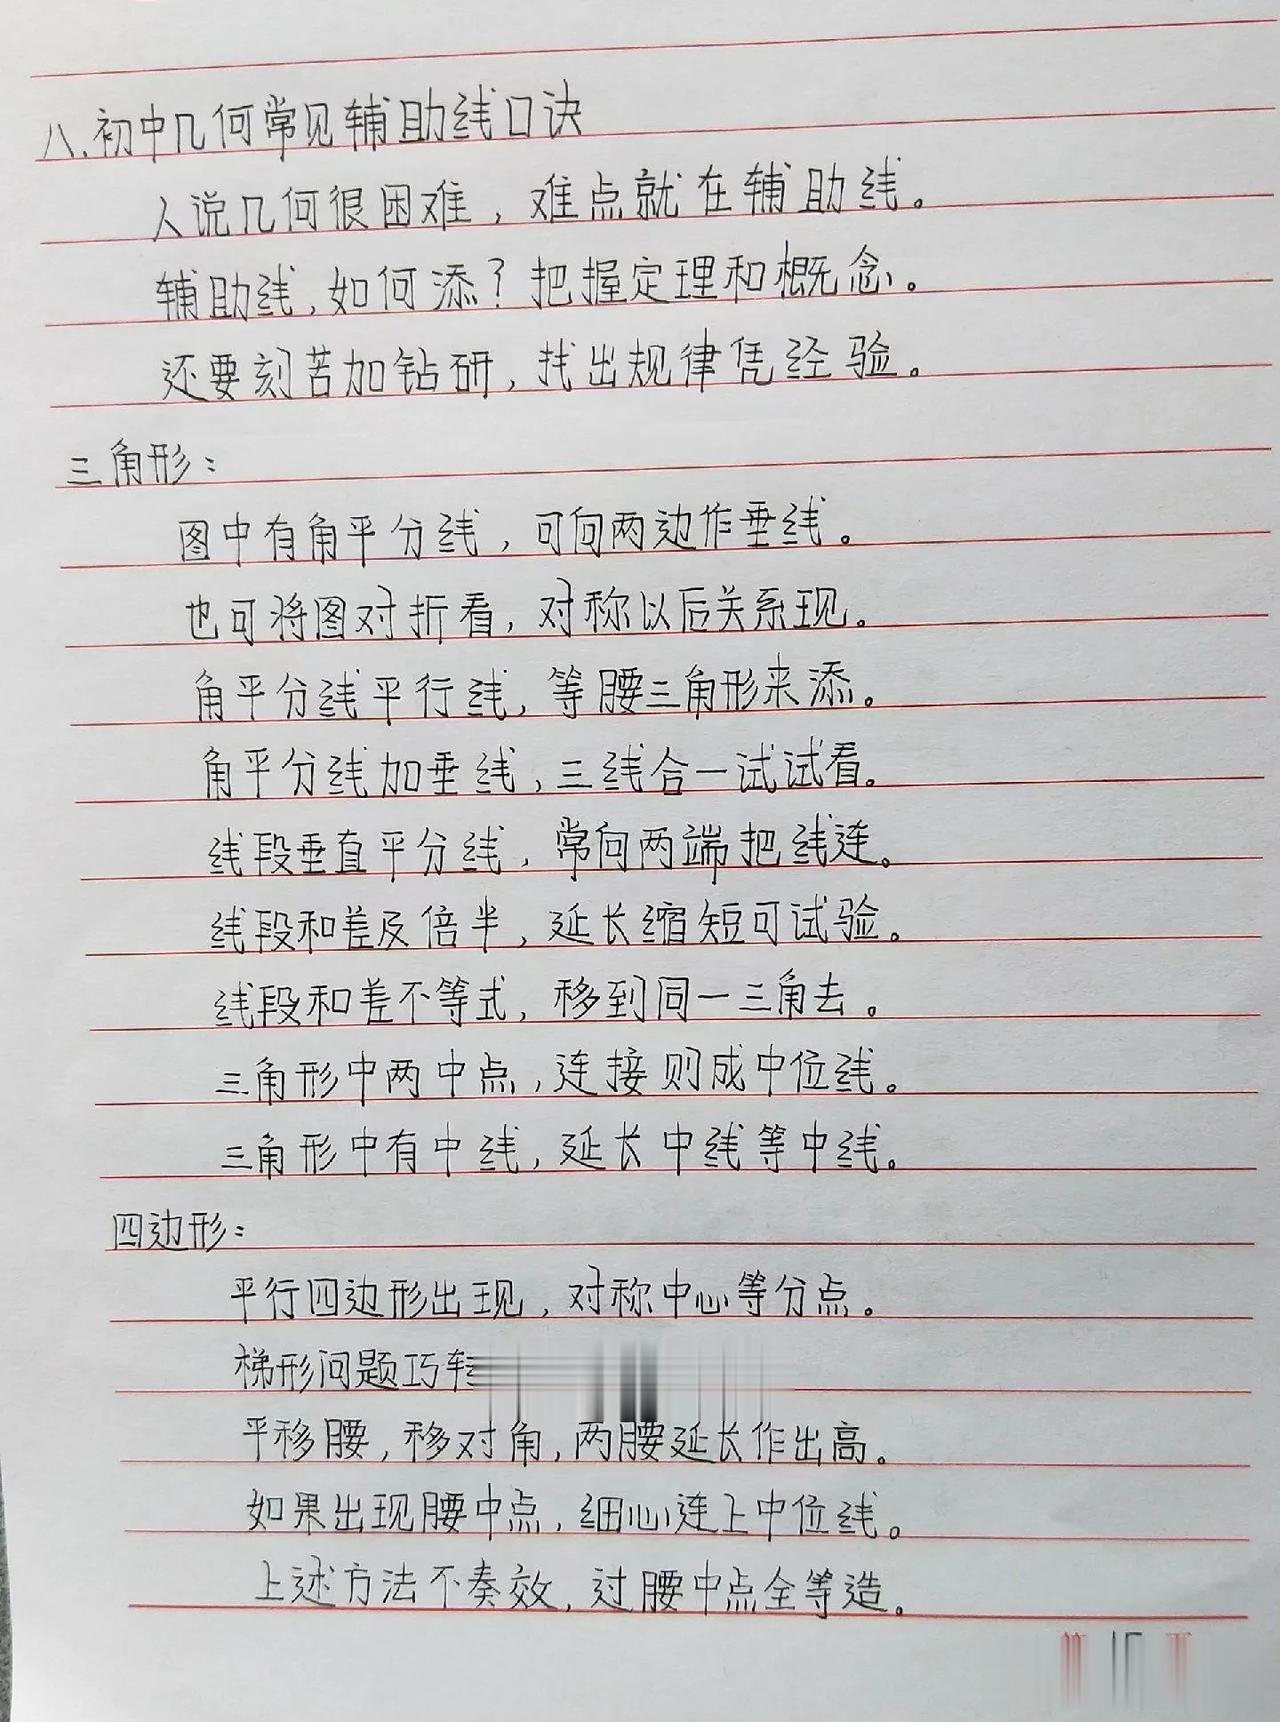 八.初中几何常见辅助线口诀
人说几何很困难，难点就在辅助线。
辅助线，如何添？把握定理和概念。
还要刻苦加钻研，找出规律凭经验。
三角形：
图中有角平分线，可向两边作垂线。
也可将图对折看，对称以后关系现。
角平分线平行线，等腰三角形来添。
角平分线加垂线，三线合一试试看。
线段垂直平分线，常向两端把线连。
线段和差及倍半，延长缩短可试验。
线段和差不等式，移到同一三角去。
三角形中两中点，连接则成中位线。
三角形中有中线，延长中线等中线。
四边形：
平行四边形出现，对称中心等分点。
梯形问题巧
平移腰，移对角，两腰延长作出高。
如果出现腰中点，细心连上中位线。
上述方法不奏效，过腰中点全等造。